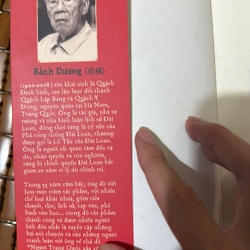 Bách Dương (柏楊)
(1920-2008) tên khai sinh là Quách
Đình Sinh, sau lần lượt đổi thành
Quách Lập Bang và Quách Y
Động, nguyên quán tại Hà Nam,
Trung Quốc. Ông là tác giả, nhà tư
tưởng và nhà bình luận lịch sử Đài
Loan, đồng thời cũng là cố vấn của
Phủ tổng thống Đài Loan, thường
được gọi là Lỗ Tấn của Đài Loan.
Ông là người rất quan tâm đến tự
do, nhân quyền và tôn nghiêm,
từng bị chính quyền Đài Loan bắt
giam 10 năm vì lý do chính trị.
Trong 53 năm cầm bút, ông đã viết
hơn một trăm tác phẩm, rất nhiều
thể loại khác nhau, gồm tiểu
thuyết, thơ, lịch sử, tạp văn, phê
bình văn học... trong đó tác phẩm
thành công và được nhiều người
biết đến nhất là tuyển tập những
bài nói chuyện và của những người
tranh luận với ông về chủ đề
"Người Trung Quốc xấu xí"